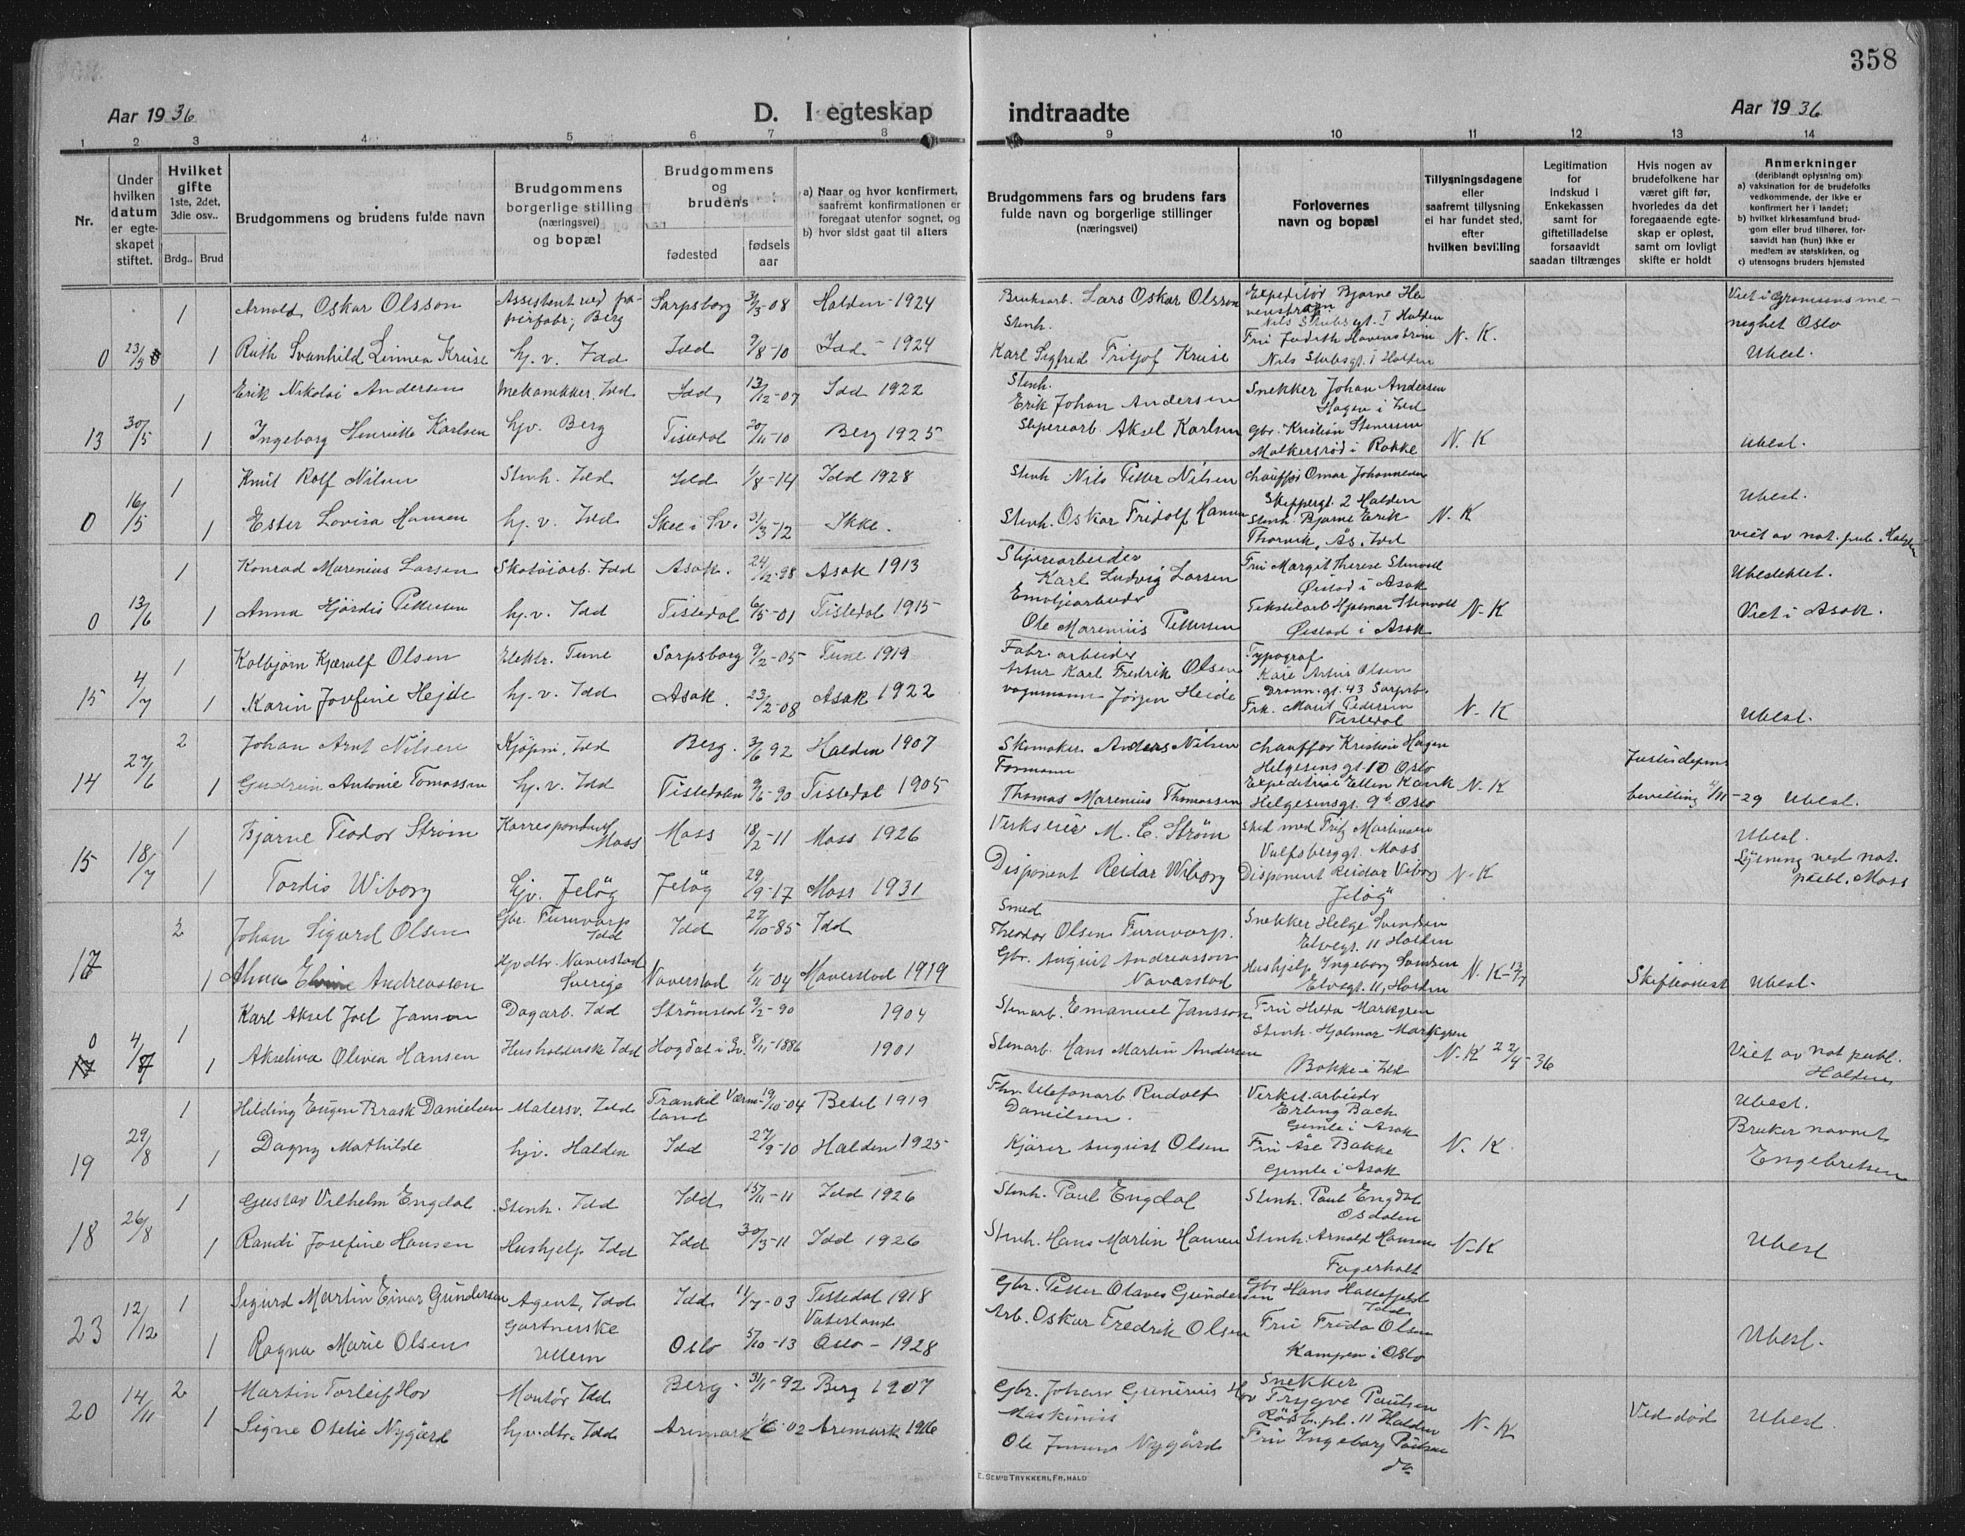 358
Aar 1936 D. I egteskap indtraadte Aar 1936
1 2 3 4 5 6 7 8 9 10 11 12 13 14
Nr.
Under hvilken datum er egteskapet stiftet.
Hvilket gifte 1ste, 2det, 3die osv..
Brdg.. Brud
Brudgommens og brudens fulde navn
Brudgommens borgerlige stilling (næringsvei) og bopæl
Brudgommens og brudens
fødested
fødsels aar
a) Naar og hvor konfirmert, saafremt konfirmationen er foregaat utenfor sognet, og
b) hvor sidst gaat til alters
Brudgommens fars og brudens fars fulde navn og borgerlige stillinger (næringsvei)
Forlovernes navn og bopæl
Tillysningsdagene eller saafremt tillysning ei har fundet sted, efter hvilken bevilling
Legitimation for indskud i Enkekassen samt for giftetilladelse forsaavidt saadan tiltrænges
Hvis nogen av brudefolkene har været gift før, hvorledes da det foregaaende egteskap er opløst, samt om lovligt skifte er holdt
Anmerkninger (deriblandt oplysning om):
a) vaksination for de brudefolks vedkommende, der ikke er konfirmert her i landet;
b) hvilket kirkesamfund brudgom eller brud tilhører, forsaavidt han (hun) ikke er medlem av statskirken, og
c) utensogns bruders hjemsted
1 Arnold Oskar Olsson Assistent ved papirfabr, Berg Sarpsborg 3/3-08 Halden-1924 Bruksarb. Lars Oskar Olsson Expeditør Bjarne Nils Stubsgt. 1 Halden Viet i Gronsens menighet Oslo
0 23/5 1 Ruth Svanhild Linnea Kruse hj. v. Idd Idd 9/8-10 Idd-1924 Stenh. Karl Sigfred Fritjof Kruse Fru Judith Havenstrøm Nils Stubsgt. 1 Halden N. K. Ubest.
1 Erik Nikolai Andersen Mekanikker, Idd Idd 13/12-07 Idd 1922 Stenh. Erik Johan Andersen Snekker Johan Andersen Hagen i Idd
13 30/5 1 Ingeborg Henriette Karlsen hjv. Berg Tistedal 20/11-10 Berg 1925 Slipearb. Aksel Karlsen gbr. Kristian Stenersen i Rokke N. K Ubest.
1 Knut Rolf Nilsen Stenh. Idd Idd 1/8-14 Idd 1928 Stenh Nils Petter Nilsen Chauffør Omar Johannesen Skippergt. 2 Halden Ubest.
0 16/5 1 Ester Lovisa Hansen hj. v. Idd Skee i Sv. 31/3-12 Ikke. Stenh. Oskar Fridolf Hansen Stenh. Bjarne Erik Thorvik, Ås, Idd N. K viet av not. pub. Halden
1 Konrad Marenius Larsen Skotøiarb. Idd Asak. 24/12-98 Asak 1913 Sliperearbeider Karl Ludvig Larsen Fru Margit Therese Stenvoll Øistad i Asak Ubestektet.
0 13/6 1 Anna Hjördis Pettersen hj. v. Idd Tistedal 6/5-01 Tistedal 1915 Ole Marenius Pettersen Tekstilarb Hjalmar Stenvoll Øistad i Asak N-K Viet i Asak.
1 Kolbjørn Kjærulf Olsen Elektr. Tune Sarpsborg 9/2-05 Tune 1919 Fabr. arbeider Artur Karl Fredrik Olsen Typograf Kåre Artur Olsen Dronn. gt. 43 Sarpsb.
15 4/7 1 Karin Josefine Hejde hj. v. Idd Asak. 23/2-08 Asak 1922 vognmann Jørgen Heide Frk. Marit Pedersen Tistedal N-K Ubest.
2 Johan Arnt Nilsen Kjøpm., Idd Berg. 3/6 92 Halden 1907 Skomaker Anders Nilsen Chauffør Kristian Hagen Helgesens gt. 10 Oslo Justisdepms
14 27/6 1 Gudrun Antonie Tomassen hj. v. Idd Tistedalen 9/6-90 Tistedal 1905 Formann Thomas Marenius Thomassen Expeditrise Ellen Kank Helgesensgt. 9b Oslo N-K bevilling 4/11-29 Ubest.
1 Bjarne Teodor Strøm Korrespondent Moss Moss 18/2-11 Moss 1926 Verkseier M. C. Strøm Sted med Fritz Martinsen Vulfsberggt. Moss Ubest.
15 18/7 1 Tordis Wiborg hjv. Jeløy Jeløy 29/9-17 Moss 1931 Disponent Reidar Wiborg Disponent Reidar Viborg Jeløy N-K Lysning ved not. publ. Moss
2 Johan Sigurd Olsen Gbr. Furuvarp Idd Idd 27/10-85 Idd Smed Theodor Olsen Furuvarp. Snekker Helge Svendsen Elvegt. 11 Halden
17 1 Alma Elvine Andreassen Hjv.dtr. Naverstad Sverige Naverstad 4/11-04 Naverstad 1919 Gbr. August Andreasson Naverstad Hushjelp Ingeborg Svendsen Elvegt. 11, Halden N. K-13/7 Skifteattest Ubest.
1 Karl Aksel Joel Janson Dagarb. Idd Strømstad 9/2-90 1904 Stenarb. Emanuel Jansson Fru Hilda Markgren
0 17 4/7 1 Akselina Olivea Hansen Husholderske Idd Hogdal i Sv. 8/11-1886 1901 Stenarb. Hans Martin Andersen Stenh. Hjalmar Markgren Bakke i Idd N. K 22/9-36 Viet av not publ. Halden
1 Hilding Eugen Brask Danielsen Matersv. Idd Trankil Värmland 19/10-04 Betel 1919 Fhv. telefonarb Rudolf Danielsen. Verkst.arbeider Erling Bach Gimle i Asak Ubest.
19 29/8 1 Dagny Mathilde hjv. Halden Idd 27/9-10 Halden 1925 Kjører August Olsen Fru Åse Bakke Gimle i Asak N. K Bruker navnet Engebretsen
1 Gustav Vilhelm Engdal Stenh. Idd Idd 15/11-11 Idd 1926 Stenh. Paul Engdal Stenh. Paul Engdal Osdalen
18 26/8 1 Randi Josefine Hansen Hushjelp Idd Idd 30/3-11 Idd 1926 Stenh. Hans Martin Hansen Stenh. Arnold Hansen Fagerholt N-K Ubest
1 Sigurd Martin Einar Gundersen Agent, Idd Idd 11/7-03 Tistedal 1918 Gbr. Petter Olaves Gundersen Gbr Hans Idd
23 12/12 1 Ragna Marie Olsen Gartnerske Oslo 5/10-13 Vaterland Oslo-1928 Arb. Oskar Fredrik Olsen Fru Frida Olsen Kampen i Oslo Ubest.
2 Martin Torleif Hov Montør Idd Berg. 31/1-92 Berg 1907 Gbr. Johan Gunerius Hov Snekker Trygve Paulsen pl. 11 Halden
20 14/11 1 Signe Otelie Nygård hjv.dtr. Idd Aremark 1/6 02 Aremark 1916 Maskinist Ole Nygård Fru Ingeborg Paulsen do N-K Ved død Ubest.
E. SEM'S TRYKKERI, FR. HALD